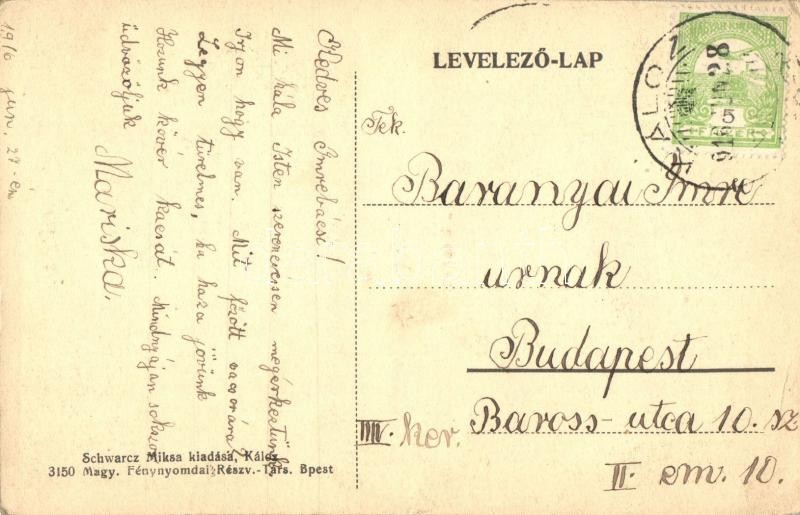 1916 jun. 27-én
Kedves Imrebácsi!
Mi hála Isten szerencsésen megérkeztünk
Irjon hogy van. Mit főzött vacsorára?
Legyen türelmes, ha haza jövünk
Hozunk kövér kacsát. Mindnyájan sokszor
üdvözöljük
Mariska.
LEVELEZŐ-LAP
KÁLOZ
916 JUN 28
5
MAGYAR KIR. POSTA
FILLÉR
Tek.
Baranyai Imre
urnak
Budapest
Baross-utca 10. sz
III. ker.
II. em. 10.
Schwarcz Miksa kiadása, Káloz
3150 Magy. Fénynyomdai Részv.-Társ. Bpest